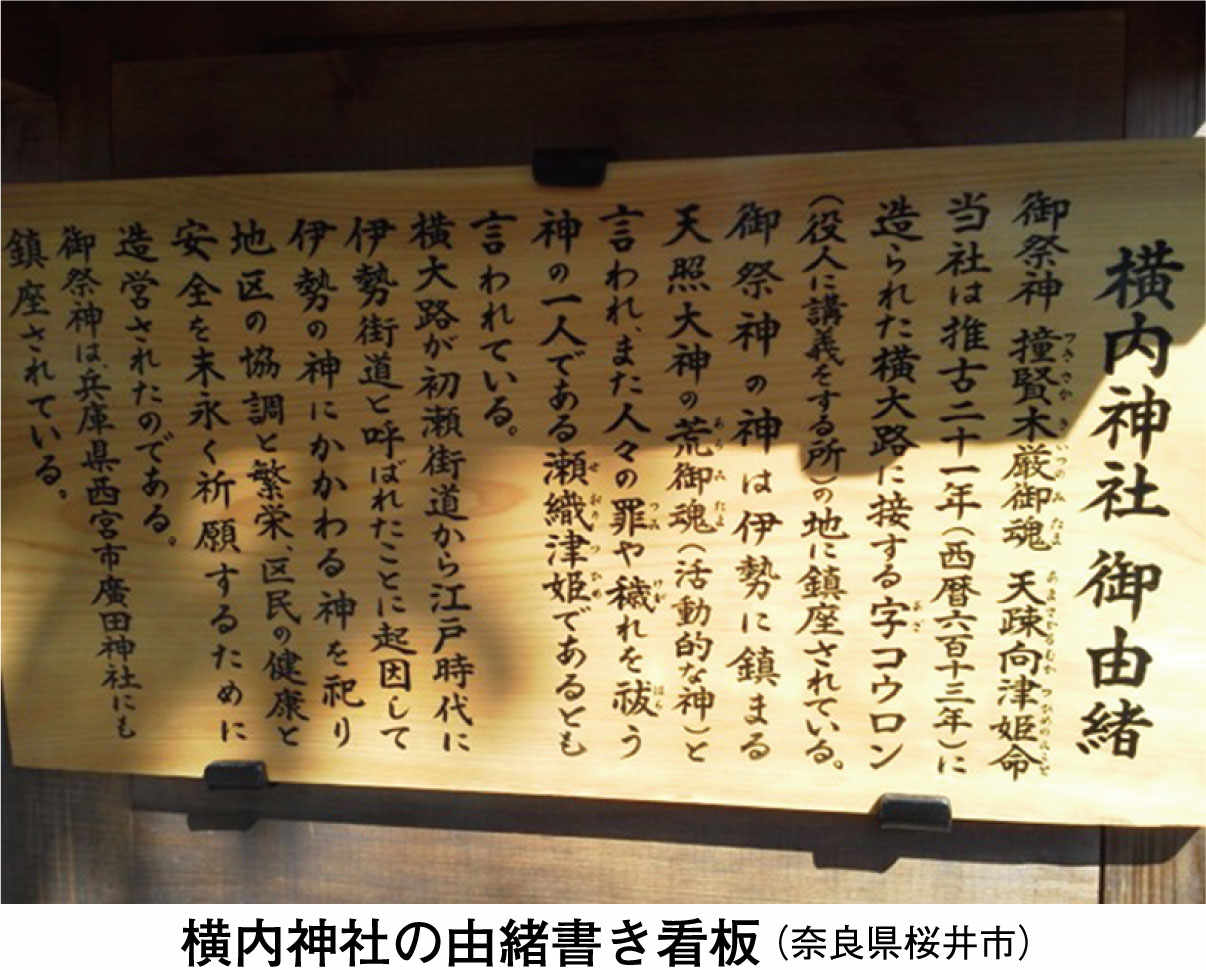 横内神社 御由緒
御祭神 撞賢木厳御魂 天疎向津姫命
当社は推古二十一年(西暦六百十三年)に
造られた横大路に接する字コウロン
(役人に講義をする所)の地に鎮座されている。
御祭神の神は伊勢に鎮まる
天照大神の荒御魂(活動的な神)と
言われ、また人々の罪や穢れを祓う
神の一人である瀬織津姫であるとも
言われている。
横大路が初瀬街道から江戸時代に
伊勢街道と呼ばれたことに起因して
伊勢の神にかかわる神を祀り
地区の協調と繁栄、区民の健康と
安全を末永く祈願するために
造営されたのである。
御祭神は、兵庫県西宮市廣田神社にも
鎮座されている。
横内神社の由緒書き看板(奈良県桜井市)